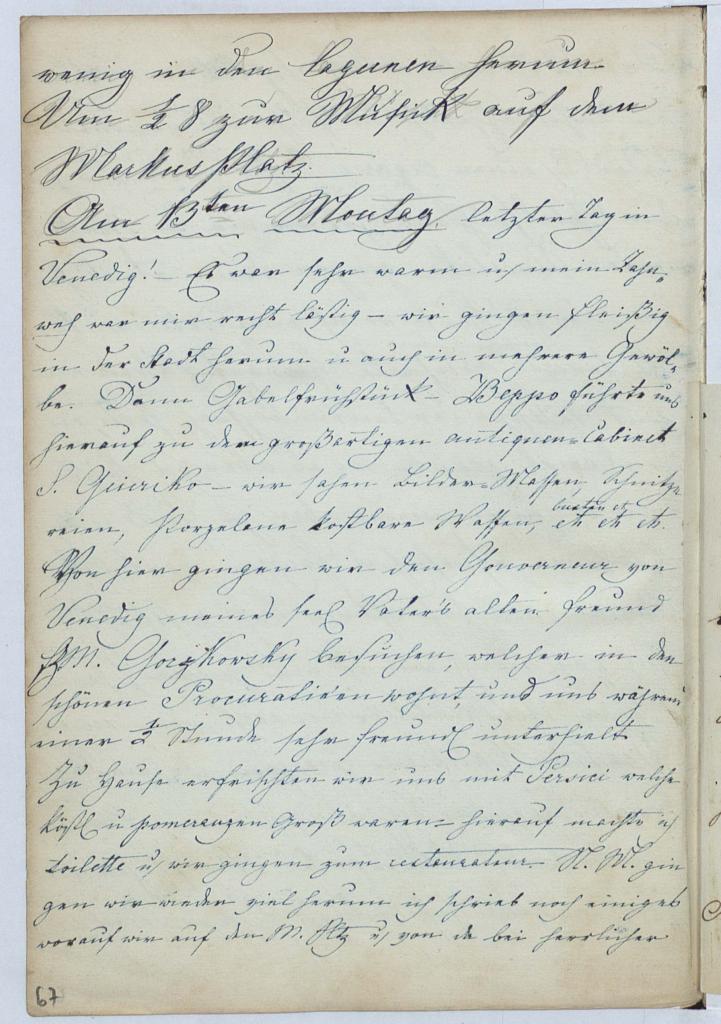 wenig in den Lagunen herum.
Um ½ 8 zur Musick auf dem
Markusplatz.
Am 13ten Montag, letzter Tag in
Venedig! – Es war sehr warm u mein Zahn„
weh war mir recht lästig – wir gingen fleißig
in der Stadt herum u auch in mehrere Gewöl„
be. Dann Gabelfrühstück – Beppo führte uns
hierauf zu dem großartigen antiquen=Cabinet
S. – wir sahen Bilder=Massen, Schnitze
reien, Porzelane kostbare Waffen, büsten etc etc etc etc.
Von hier gingen wir den Gouverneur von
Venedig meines seel Vater's alten Freund
FZM. Gorzkowsky besuchen, welcher in den
schönen Procuratien wohnt, und uns während
einer ½ Stunde sehr freundl unterhielt.
Zu Hause erfrischten wir uns mit Persici welche
köstl u pomeranzen Groß waren – hierauf machte ich
toilette u wir gingen zum restaurateur. – N. M. gin
gen wir wieder viel herum ich schrieb noch einiges
worauf wir auf den M. Pltz u von da bei herrlicher
67